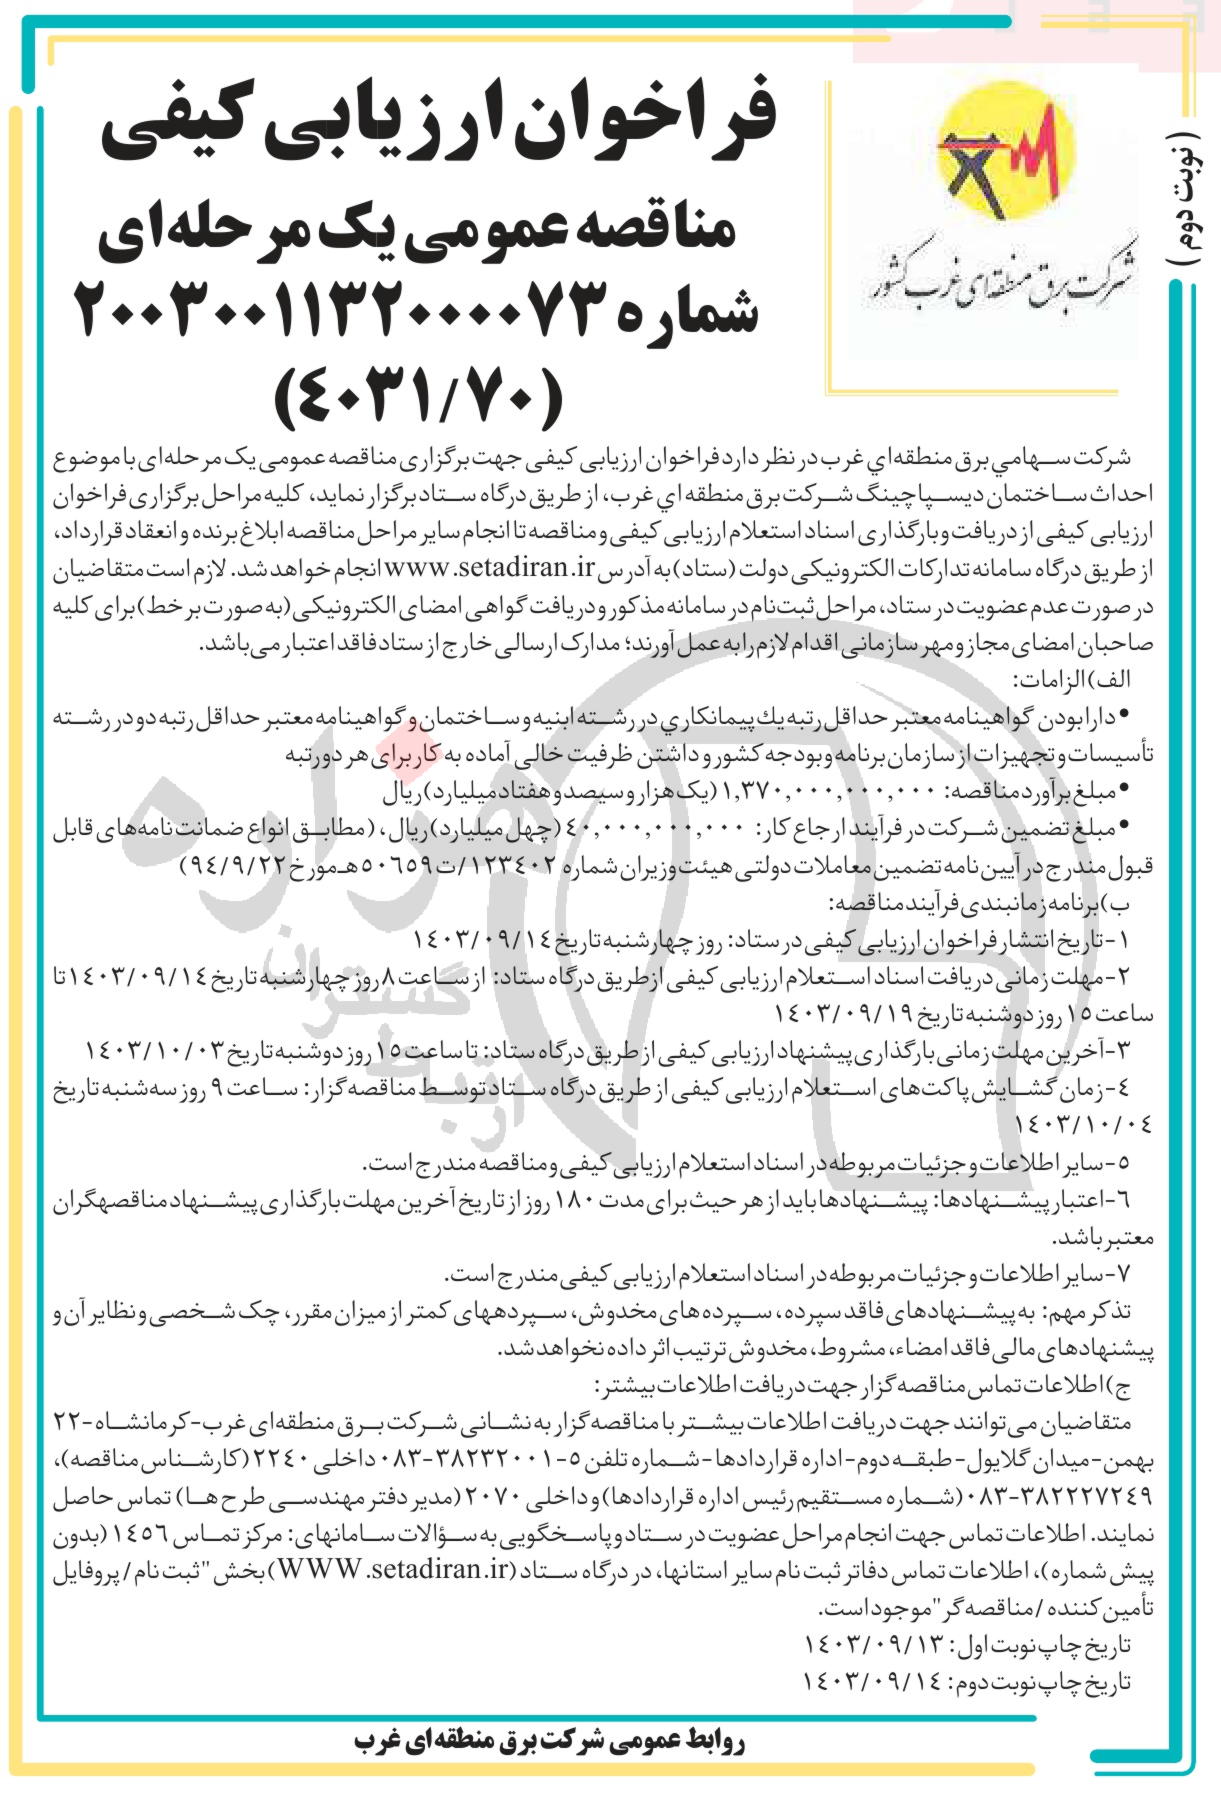 (نوبت دوم)
شرکت برق منطقه‌ای غرب کشور
فراخوان ارزیابی کیفی
مناقصه عمومی یک مرحله‌ای
شماره ۲۰۰۳۰۰۱۱۳۲۰۰۰۰۷۳
(۴۰۳۱/۷۰)
شرکت سهامي برق منطقه‌اي غرب در نظر دارد فراخوان ارزیابی کیفی جهت برگزاری مناقصه عمومی یک مرحله‌ای با موضوع
احداث ساختمان دیسپاچینگ شرکت برق منطقه اي غرب، از طریق درگاه ستاد برگزار نماید، کلیه مراحل برگزاری فراخوان
ارزیابی کیفی از دریافت و بارگذاری اسناد استعلام ارزیابی کیفی و مناقصه تا انجام سایر مراحل مناقصه ابلاغ برنده و انعقاد قرارداد،
از طریق درگاه سامانه تدارکات الکترونیکی دولت (ستاد) به آدرس www.setadiran.ir انجام خواهد شد. لازم است متقاضیان
در صورت عدم عضویت در ستاد، مراحل ثبت‌نام در سامانه مذکور و دریافت گواهی امضای الکترونیکی (به صورت بر خط) برای کلیه
صاحبان امضای مجاز و مهر سازمانی اقدام لازم را به عمل آورند؛ مدارک ارسالی خارج از ستاد فاقد اعتبار می‌باشد.
الف) الزامات:
• دارا بودن گواهینامه معتبر حداقل رتبه يك پيمانكاري در رشته ابنیه و ساختمان و گواهینامه معتبر حداقل رتبه دو در رشته
تأسیسات و تجهیزات از سازمان برنامه و بودجه کشور و داشتن ظرفیت خالی آماده به کار برای هر دو رتبه
• مبلغ برآورد مناقصه: ۱,۳۷۰,۰۰۰,۰۰۰,۰۰۰ (یک هزار و سیصد و هفتاد میلیارد) ریال
• مبلغ تضمین شرکت در فرآیند ارجاع کار: ۴۰,۰۰۰,۰۰۰,۰۰۰ (چهل میلیارد) ریال، (مطابق انواع ضمانت نامه‌های قابل
قبول مندرج در آیین نامه تضمین معاملات دولتی هیئت وزیران شماره ۱۲۳۴۰۲/ت۵۰۶۵۹هـ مورخ ۹۴/۹/۲۲)
ب) برنامه زمانبندی فرآیند مناقصه:
۱-تاریخ انتشار فراخوان ارزیابی کیفی در ستاد: روز چهارشنبه تاریخ ۱۴۰۳/۰۹/۱۴
۲-مهلت زمانی دریافت اسناد استعلام ارزیابی کیفی از طریق درگاه ستاد: از ساعت ۸ روز چهارشنبه تاریخ ۱۴۰۳/۰۹/۱۴ تا
ساعت ۱۵ روز دوشنبه تاریخ ۱۴۰۳/۰۹/۱۹
۳-آخرین مهلت زمانی بارگذاری پیشنهاد ارزیابی کیفی از طریق درگاه ستاد: تا ساعت ۱۵ روز دوشنبه تاریخ ۱۴۰۳/۱۰/۰۳
۴-زمان گشایش پاکت‌های استعلام ارزیابی کیفی از طریق درگاه ستاد توسط مناقصه گزار: ساعت ۹ روز سه‌شنبه تاریخ
۱۴۰۳/۱۰/۰۴
۵-سایر اطلاعات و جزئیات مربوطه در اسناد استعلام ارزیابی کیفی و مناقصه مندرج است.
۶-اعتبار پیشنهادها: پیشنهادها باید از هر حیث برای مدت ۱۸۰ روز از تاریخ آخرین مهلت بارگذاری پیشنهاد مناقصهگران
معتبر باشد.
۷-سایر اطلاعات و جزئیات مربوطه در اسناد استعلام ارزیابی کیفی مندرج است.
تذکر مهم: به پیشنهادهای فاقد سپرده، سپرده‌های مخدوش، سپردههای کمتر از میزان مقرر، چک شخصی و نظایر آن و
پیشنهادهای مالی فاقد امضاء، مشروط، مخدوش ترتیب اثر داده نخواهد شد.
ج) اطلاعات تماس مناقصه گزار جهت دریافت اطلاعات بیشتر:
متقاضیان می‌توانند جهت دریافت اطلاعات بیشتر با مناقصه گزار به نشانی شرکت برق منطقه‌ای غرب-کرمانشاه-۲۲
بهمن-میدان گلایول-طبقه دوم-اداره قراردادها-شماره تلفن ۵-۰۸۳-۳۸۲۳۲۰۰۱ داخلی ۲۲۴۰ (کارشناس مناقصه)،
۰۸۳-۳۸۲۲۲۷۲۴۹ (شماره مستقیم رئیس اداره قراردادها) و داخلی ۲۰۷۰ (مدیر دفتر مهندسی طرح ها) تماس حاصل
نمایند. اطلاعات تماس جهت انجام مراحل عضویت در ستاد و پاسخگویی به سؤالات سامانهای: مرکز تماس ۱۴۵۶ (بدون
پیش شماره)، اطلاعات تماس دفاتر ثبت نام سایر استانها، در درگاه ستاد (WWW.setadiran.ir) بخش "ثبت نام / پروفایل
تأمین کننده / مناقصه گر" موجود است.
تاریخ چاپ نوبت اول: ۱۴۰۳/۰۹/۱۳
تاریخ چاپ نوبت دوم: ۱۴۰۳/۰۹/۱۴
روابط عمومی شرکت برق منطقه‌ای غرب